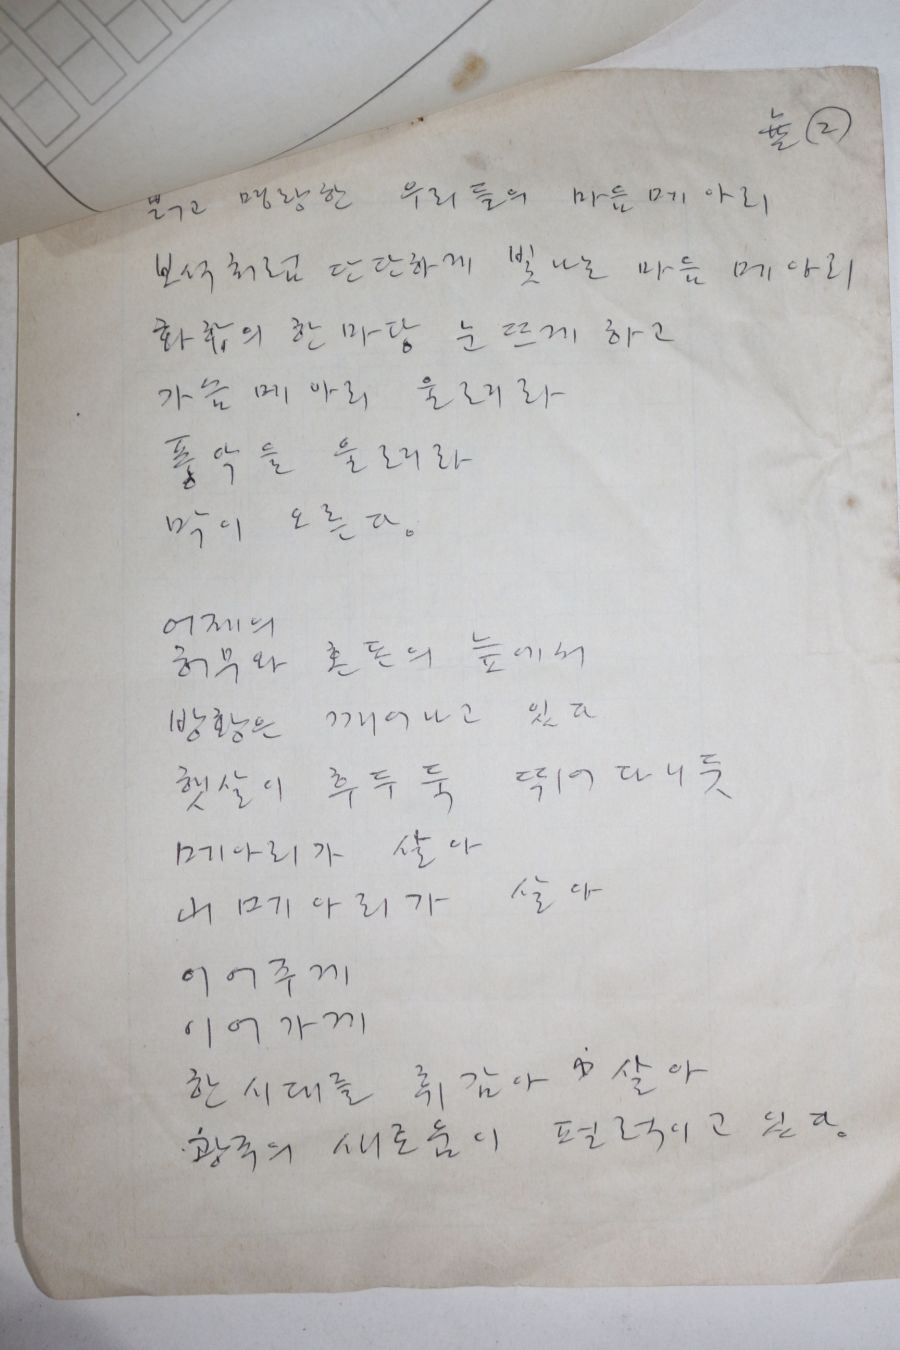 ②
밝고 명랑한 우리들의 마음메아리
보석처럼 단단하게 빛나는 마음 메아리
화합의 한마당 눈뜨게 하고
가슴 메아리 울리라
풍악을 울리라
막이 오른다.
어제의
허무와 혼돈의 늪에서
방황은 깨어나고 있다
햇살이 후두둑 뛰어다니듯
메아리가 살아
내 메아리가 살아
이어주게
이어가게
한 시대를 휘감아 살아
광주의 새로움이 펄럭이고 있다.